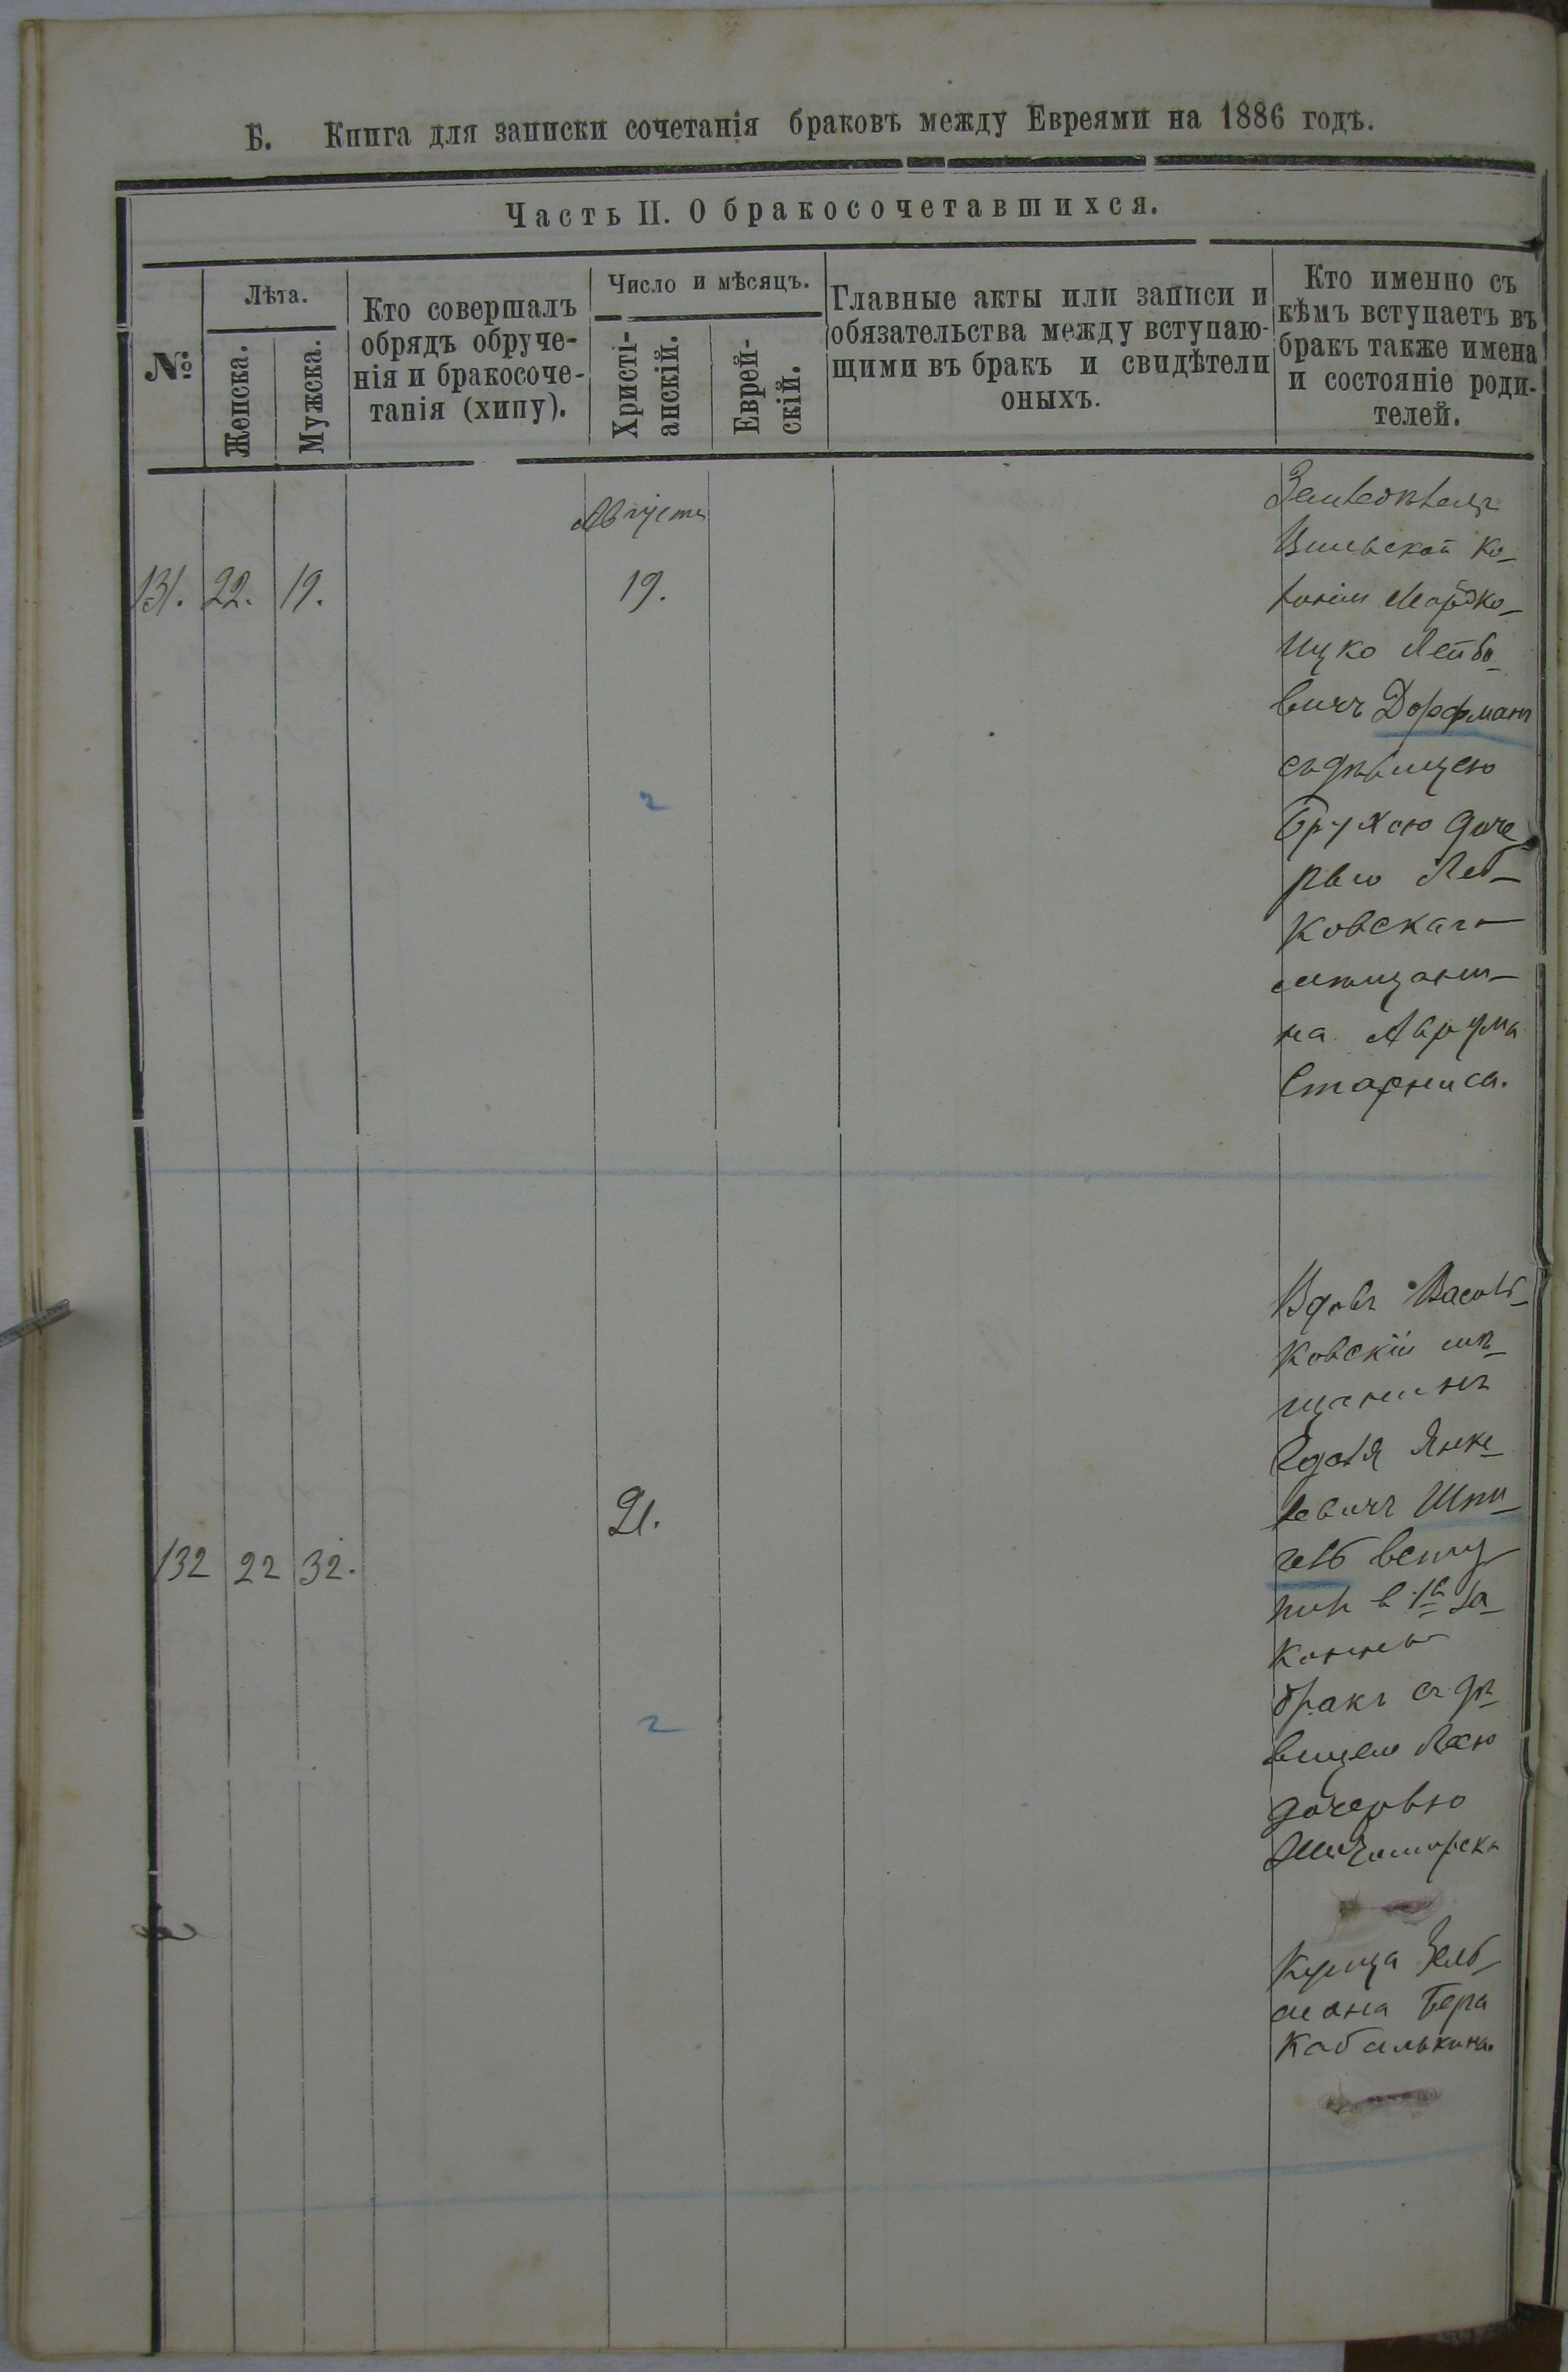 Б. Книга для записки сочетанія браковъ между Евреями на 1886 годъ.
Часть II. О бракосочетавшихся.
№
Лѣта.
Женска.
Мужска.
Кто совершалъ
обрядъ обруче-
нія и бракосоче-
танія (хипу).
Число и мѣсяцъ.
Христі-
анскій.
Еврей-
скій.
Главные акты или записи и
обязательства между вступаю-
щими въ бракъ и свидѣтели
оныхъ.
Кто именно съ
кѣмъ вступаетъ въ
бракъ также имена
и состояніе роди-
телей.
Августа
131. 22. 19.
19.
Земледѣлецъ
ко-
лоніи Мордко-
Ицко Лейбо-
вичъ Дорфманъ
съ дѣвицею
Брухою доче-
рью
ковскаго
мѣщани-
на Аврума
Старниса.
132 22 32.
21.
Вдовъ Василь-
ковскій мѣ-
щанинъ
Гдаля Янке-
левичъ Шпи-
гель всту
пил в 1й за-
конный
бракъ съ дѣ-
вицею Лею
дочерью
Житомирска
Купца Зель-
мана Бера
Кабалькина.